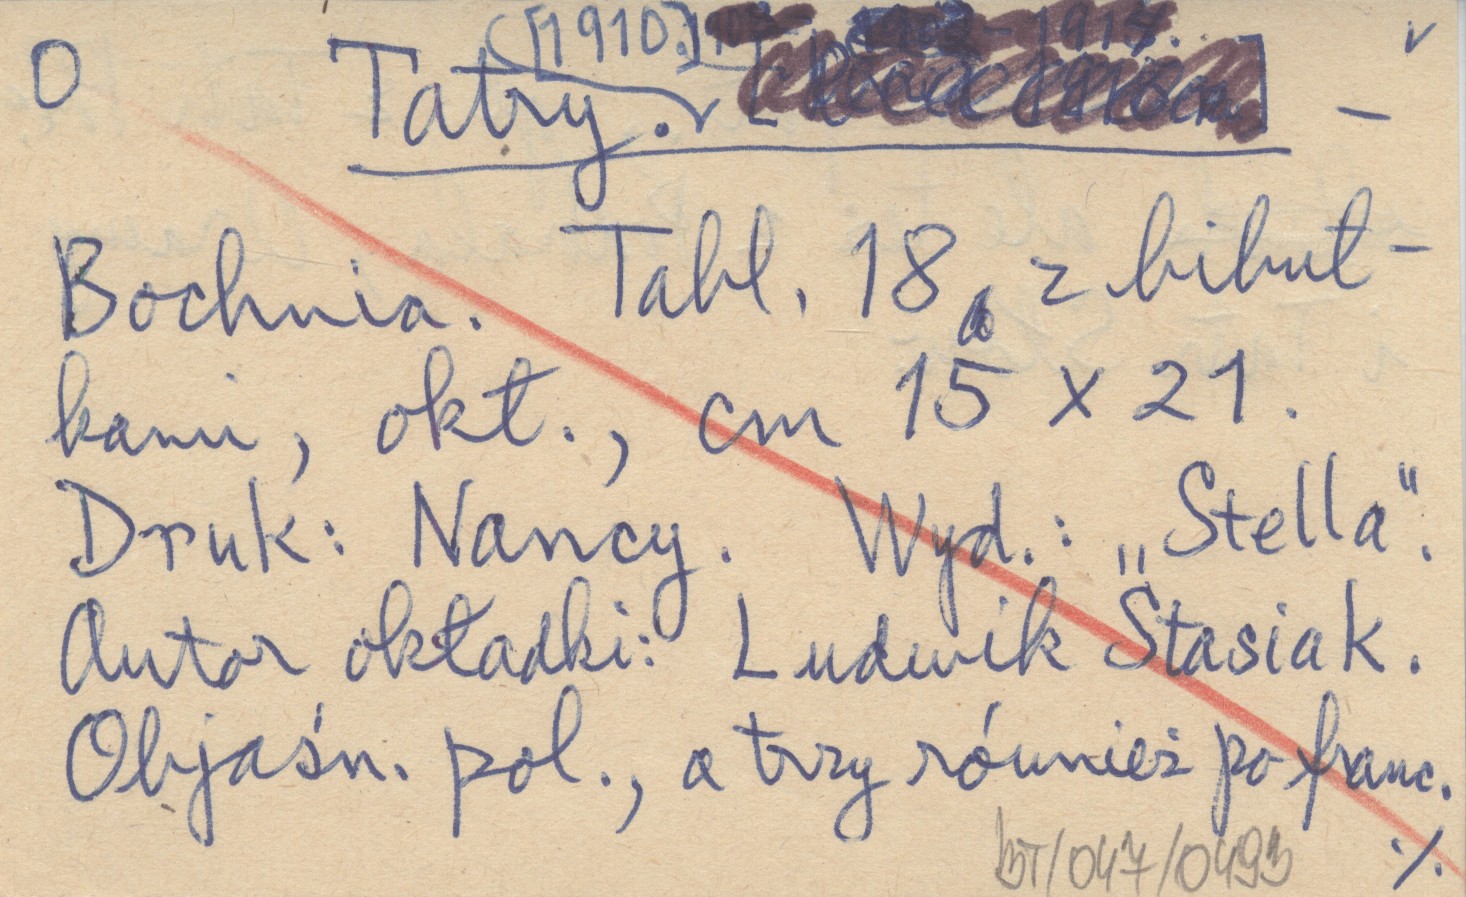 O ([1910.]
Tatry. –
Bochnia. Tabl. 18, z bibuł-
kami, okł., cm 15 x 21.
Druk: Nancy. Wyd.: „Stella".
Autor okładki: Ludwik Stasiak.
Objaśn. pol., a trzy również po franc.
BT/047/0493 ·/.